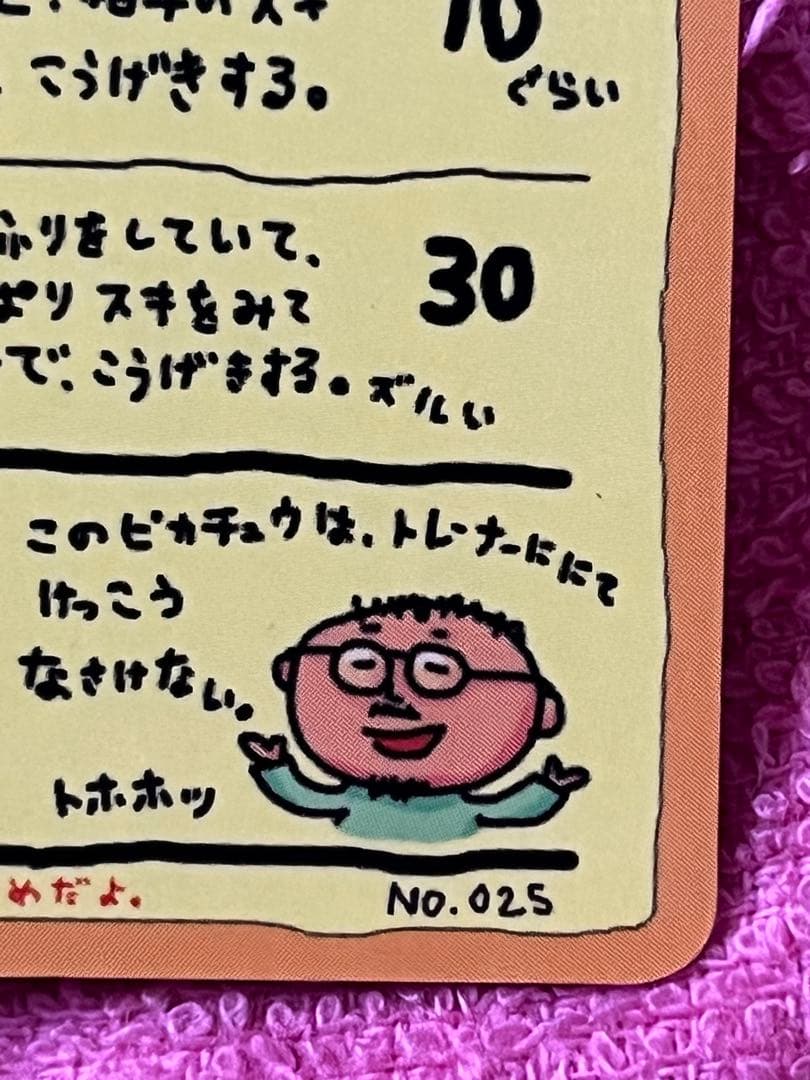 10
こうげきする。
ぐらい
ふりをしていて、
ぱり スキをみて
30
で、こうげきする。ズルい
このピカチュウは、トレーナーににて
けっこう
なさけない。
トホホッ
めだよ。
NO.025